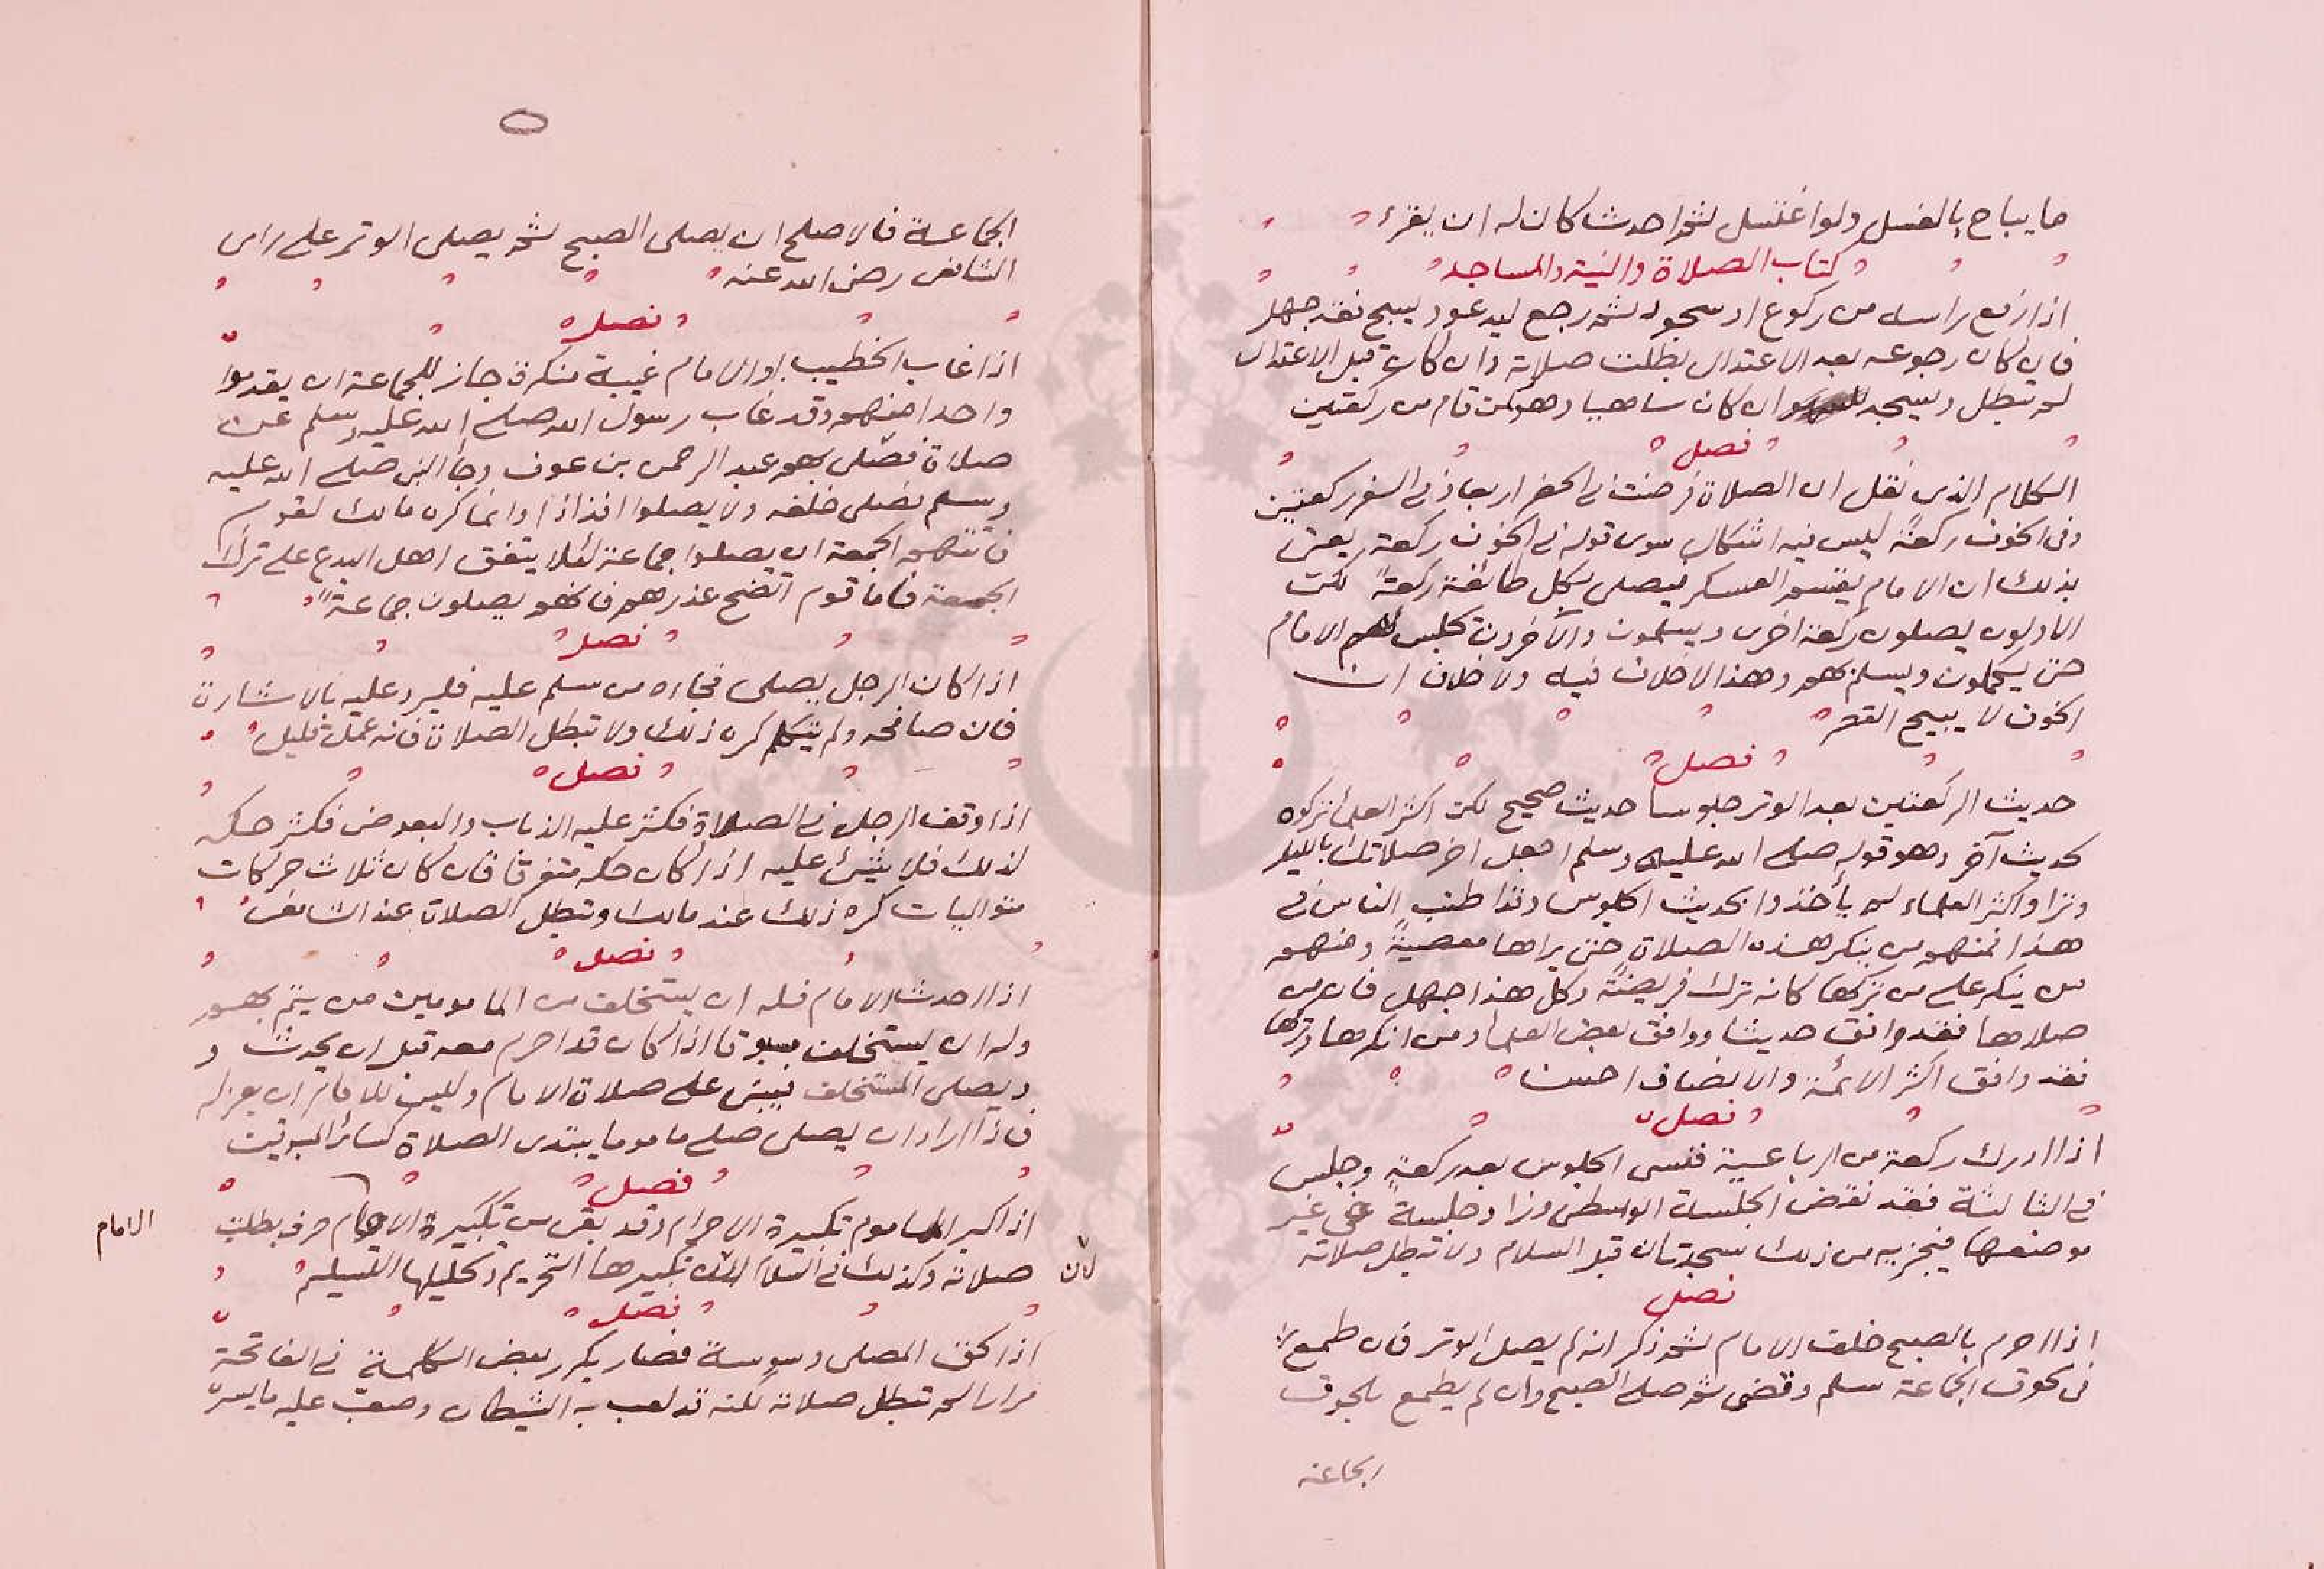 ما يباح بالغسل ولو اغتسل ثم احدث كان له ان يقرء
كتاب الصلاة والنية والمساجد
اذا رفع راسه من ركوع او سجود ثم رجع ليدعو ويسبح نقد جهل
فان كان رجوعه بعد الاعتدال بطلت صلاته وان كان قبل الاعتدال
لم تبطل ويسجد للسهو ان كان ساهيا وهو كمن قام من ركعتين
فصل
الكلام الذي نقل ان الصلاة فرضت في الحضر اربعا وفي السفر ركعتين
وفي الخوف ركعة ليس فيه اشكال سوى قوله في الخوف ركعة ويعني
بذلك ان الامام يقسم العسكر فيصلي بكل طائفة ركعة لكن
الاولون يصلون ركعة اخرى ويسلمون والآخرون يجلس لهم الامام
حتى يكملون ويسلم بهم وهذا لا خلاف فيه ولا خلاف ان
الخوف لا يبيح القصر
فصل
حديث الركعتين بعد الوتر جلوسا حديث صحيح لكن اكثر العلماء تركوه
لحديث آخر وهو قوله صلى الله عليه وسلم اجعل اخر صلاتك بالليل
وترا واكثر العلماء لم يأخذوا بحديث الجلوس وتذاطنب الناس في
هذا فمنهم من ينكر هذه الصلاة حتى يراها معصية ومنهم
من ينكر على من تركها كانه ترك فريضة وكل هذا جهل فان من
صلاها فقد وافق حديثا ووافق بعض العلماء ومن انكرها وتركها
فقد وافق اكثر الائمة والانصاف احسن
فصل
اذا ادرك ركعة من الرباعية فنسي الجلوس بعد ركعة وجلس
في الثالثة فقد نقض الجلسة الوسطى وزاد جلسة في غير
موضعها فيجزيه من ذلك سجدتان قبل السلام ولا تبطل صلاته
فصل
اذا احرم بالصبح خلف الامام ثم ذكر انه لم يصل الوتر فان طمع
في لحوق الجماعة سلم وقضى ثم صلى الصبح وان لم يطمع بلحوق
الجماعة
الجماعة فالاصلح ان يصلي الصبح ثم يصلي الوتر على راي
الشافعي رضي الله عنه
فصل
اذا غاب الخطيب او الامام غيبة منكرة جاز للجماعة ان يقدموا
واحدا منهم وقد غاب رسول الله صلى الله عليه وسلم عن
صلاة فصلى بهم عبد الرحمن بن عوف وجا النبي صلى الله عليه
وسلم فصلى خلفه ولا يصلوا افذاذا وانما كره مالك لقوم
فاتتهم الجمعة ان يصلوا جماعة لئلا يتفق اهل البدع على ترك
الجمعة فاما قوم اتضح عذرهم فانهم يصلون جماعة
فصل
اذا كان الرجل يصلي فجاءه من سلم عليه فليرد عليه بالاشارة
فان صافحه ولم يتكلم كره ذلك ولا تبطل الصلاة فانه عمل قليل
فصل
اذا وقف الرجل في الصلاة فكثر عليه الذباب والبعوض فكثر حكه
لذلك فلا شيئ عليه اذا كان حكه متفرقا فان كان ثلاث حركات
متواليات كره ذلك عند مالك وتبطل الصلاة عند الشافعي
فصل
اذا احدث الامام فله ان يستخلف من المامومين من يتم بهم
وله ان يستخلف مسبوقا اذا كان قد احرم معه قبل ان يحدث و
ويصلي المستخلف فيبني على صلاة الامام وليس للامام ان يعزله
فاذا اراد ان يصلي صلى ماموما يبتدى الصلاة كسائر المسبوقين
فصل
اذا كبر الماموم تكبيرة الاحرام وقد بقي من تكبيرة الامام حرف بطلت
الامام
صلاته وكذلك في السلام لان تكبيرها التحريم وتحليلها التسليم
لان
فصل
اذا لحق المصلي وسوسة فصار يكرر بعض الكلمة في الفاتحة
مرارا لم تبطل صلاته لكنه قد لعب به الشيطان وصعب عليه ما يسره